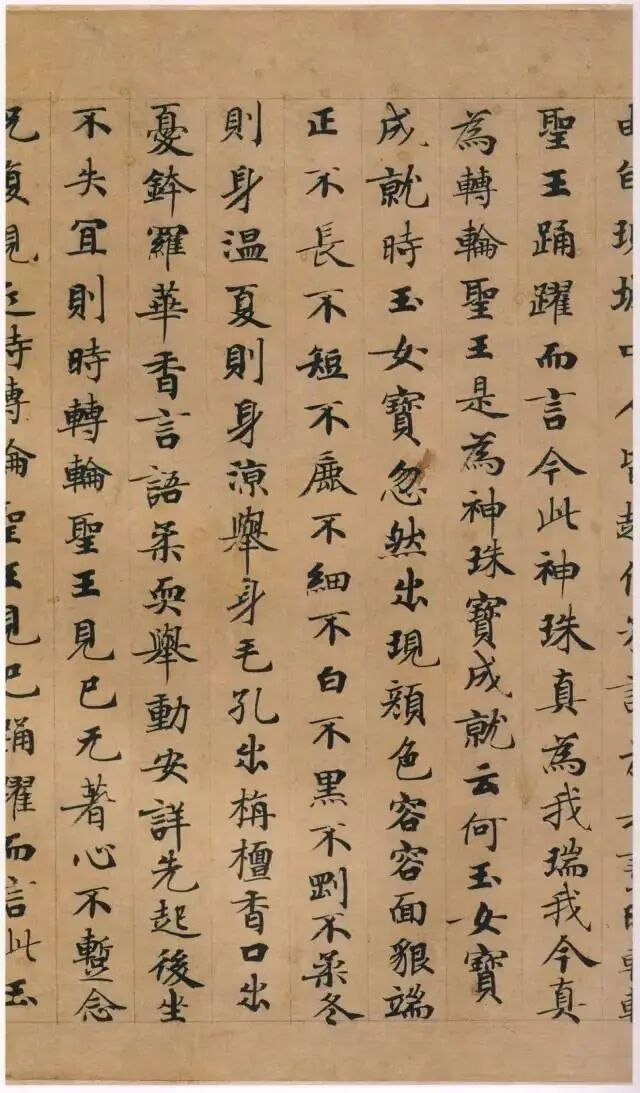 現城中人皆起作時轉輪
聖王踊躍而言今此神珠真為我瑞我今真
為轉輪聖王是為神珠寶成就云何玉女寶
成就時玉女寶忽然出現顏色容容面貌端
正不長不短不麁不細不白不黑不剛不柔冬
則身温夏則身涼舉身毛孔出栴檀香口出
憂鉢羅華香言語柔耎舉動安詳先起後坐
不失冝則時轉輪聖王見已无著心不蹔念
況復親近時轉輪聖王見已踊躍而言此玉